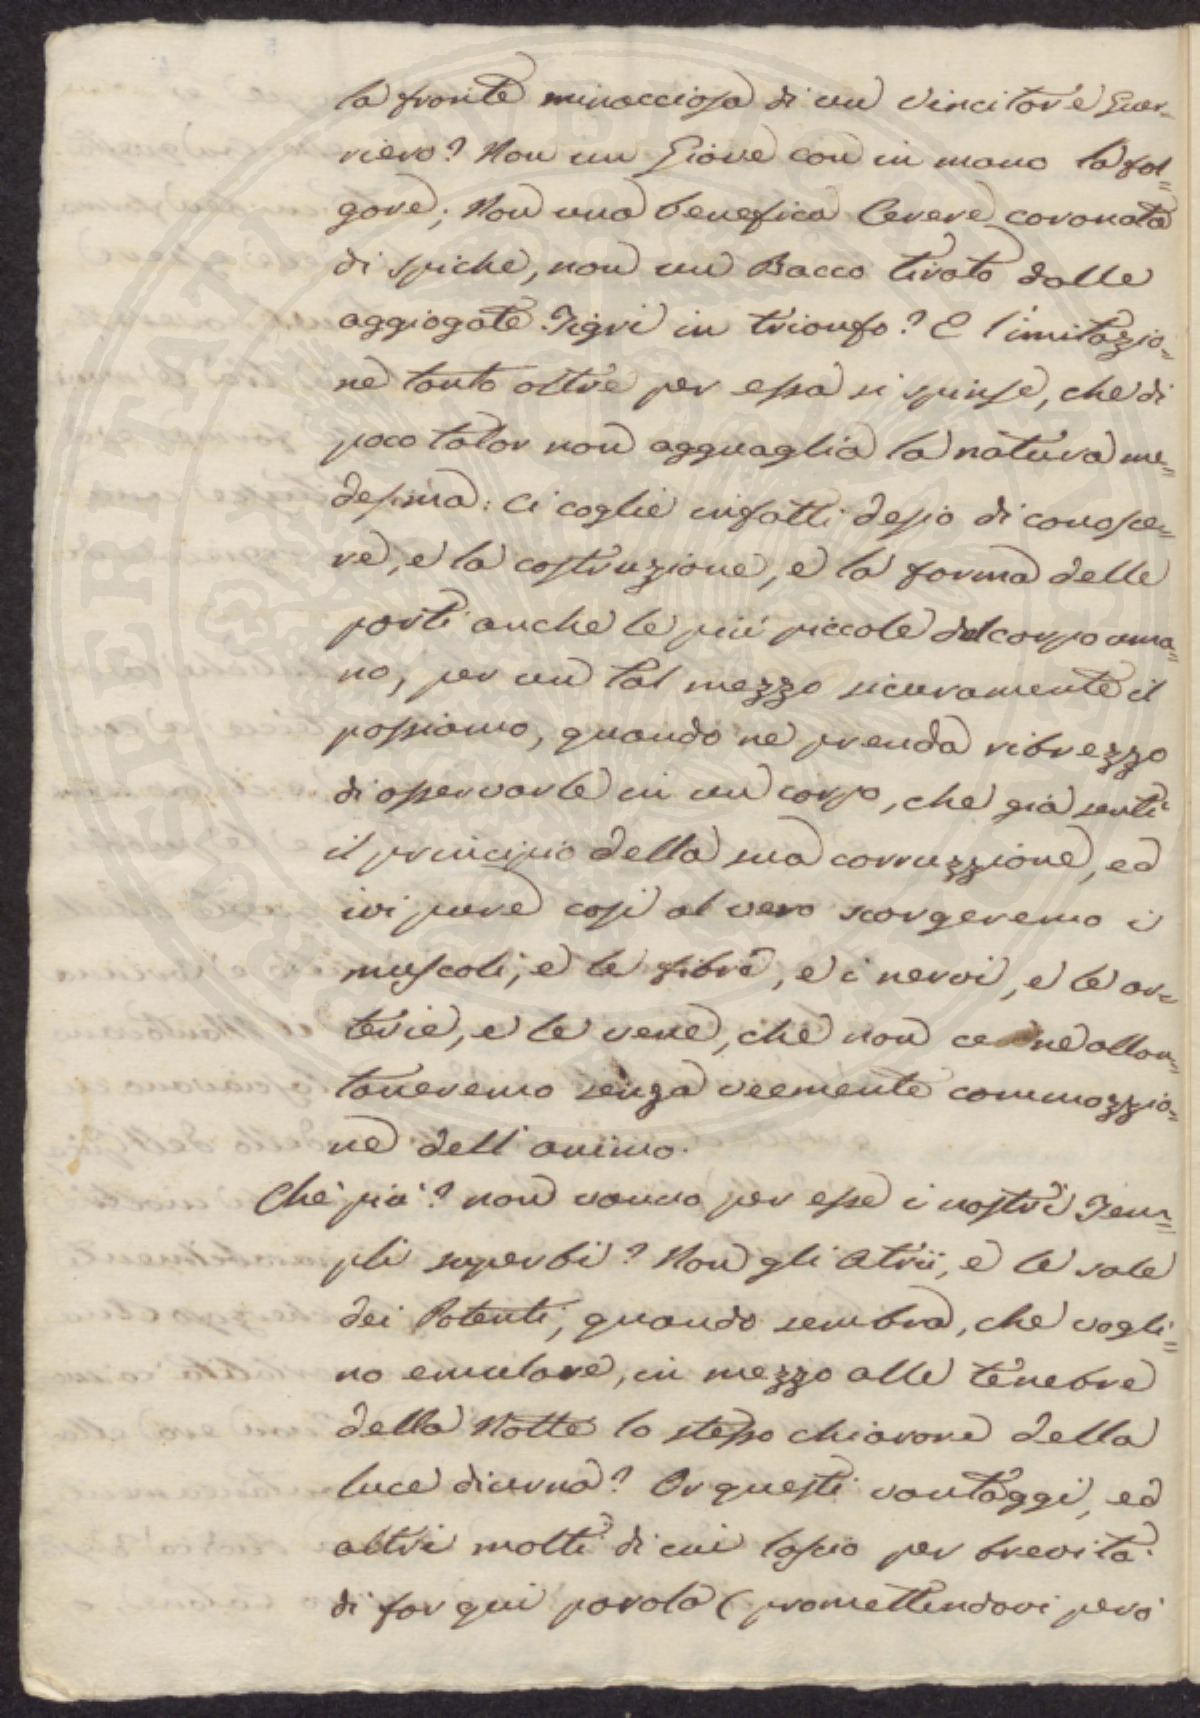 la fronte minacciosa di un vincitore Guer-
riero? Non un Giove con in mano la fol=
gore; Non una benefica Cerere coronata
di spiche, non un Bacco tirato dalle
aggiogate Tigri in trionfo? E l'imitazio=
ne tanto oltre per essa si spinse, che di
poco talor non agguaglia la natura me=
desima: Ci coglie infatti desio di conosce=
re, e la costruzione, e la forma delle
parti anche le più piccole del corpo uma=
no, per un tal mezzo sicuramente il
possiamo, quando ne prenda ribrezzo
di osservarle in un corpo, che già sentì
il principio della sua corruzzione, ed
ivi pure così al vero scorgeremo i
muscoli, e le fibre, e i nervi, e le ar=
terie, e le vene, che non ce ne allon=
taneremo senza veemente commozzio=
ne dell'animo.
Che più? non vanno per esse i nostri Tem=
pli superbi? Non gli Atrii, e le sale
dei Potenti, quando sembra, che vogli=
no emulare, in mezzo alle tenebre
della Notte lo stesso chiarore della
luce diurna? Or questi vantaggi, ed
altri molti di cui lascio per brevità
di far qui parola (promettendovi però
SPERITATI PVBLICAE